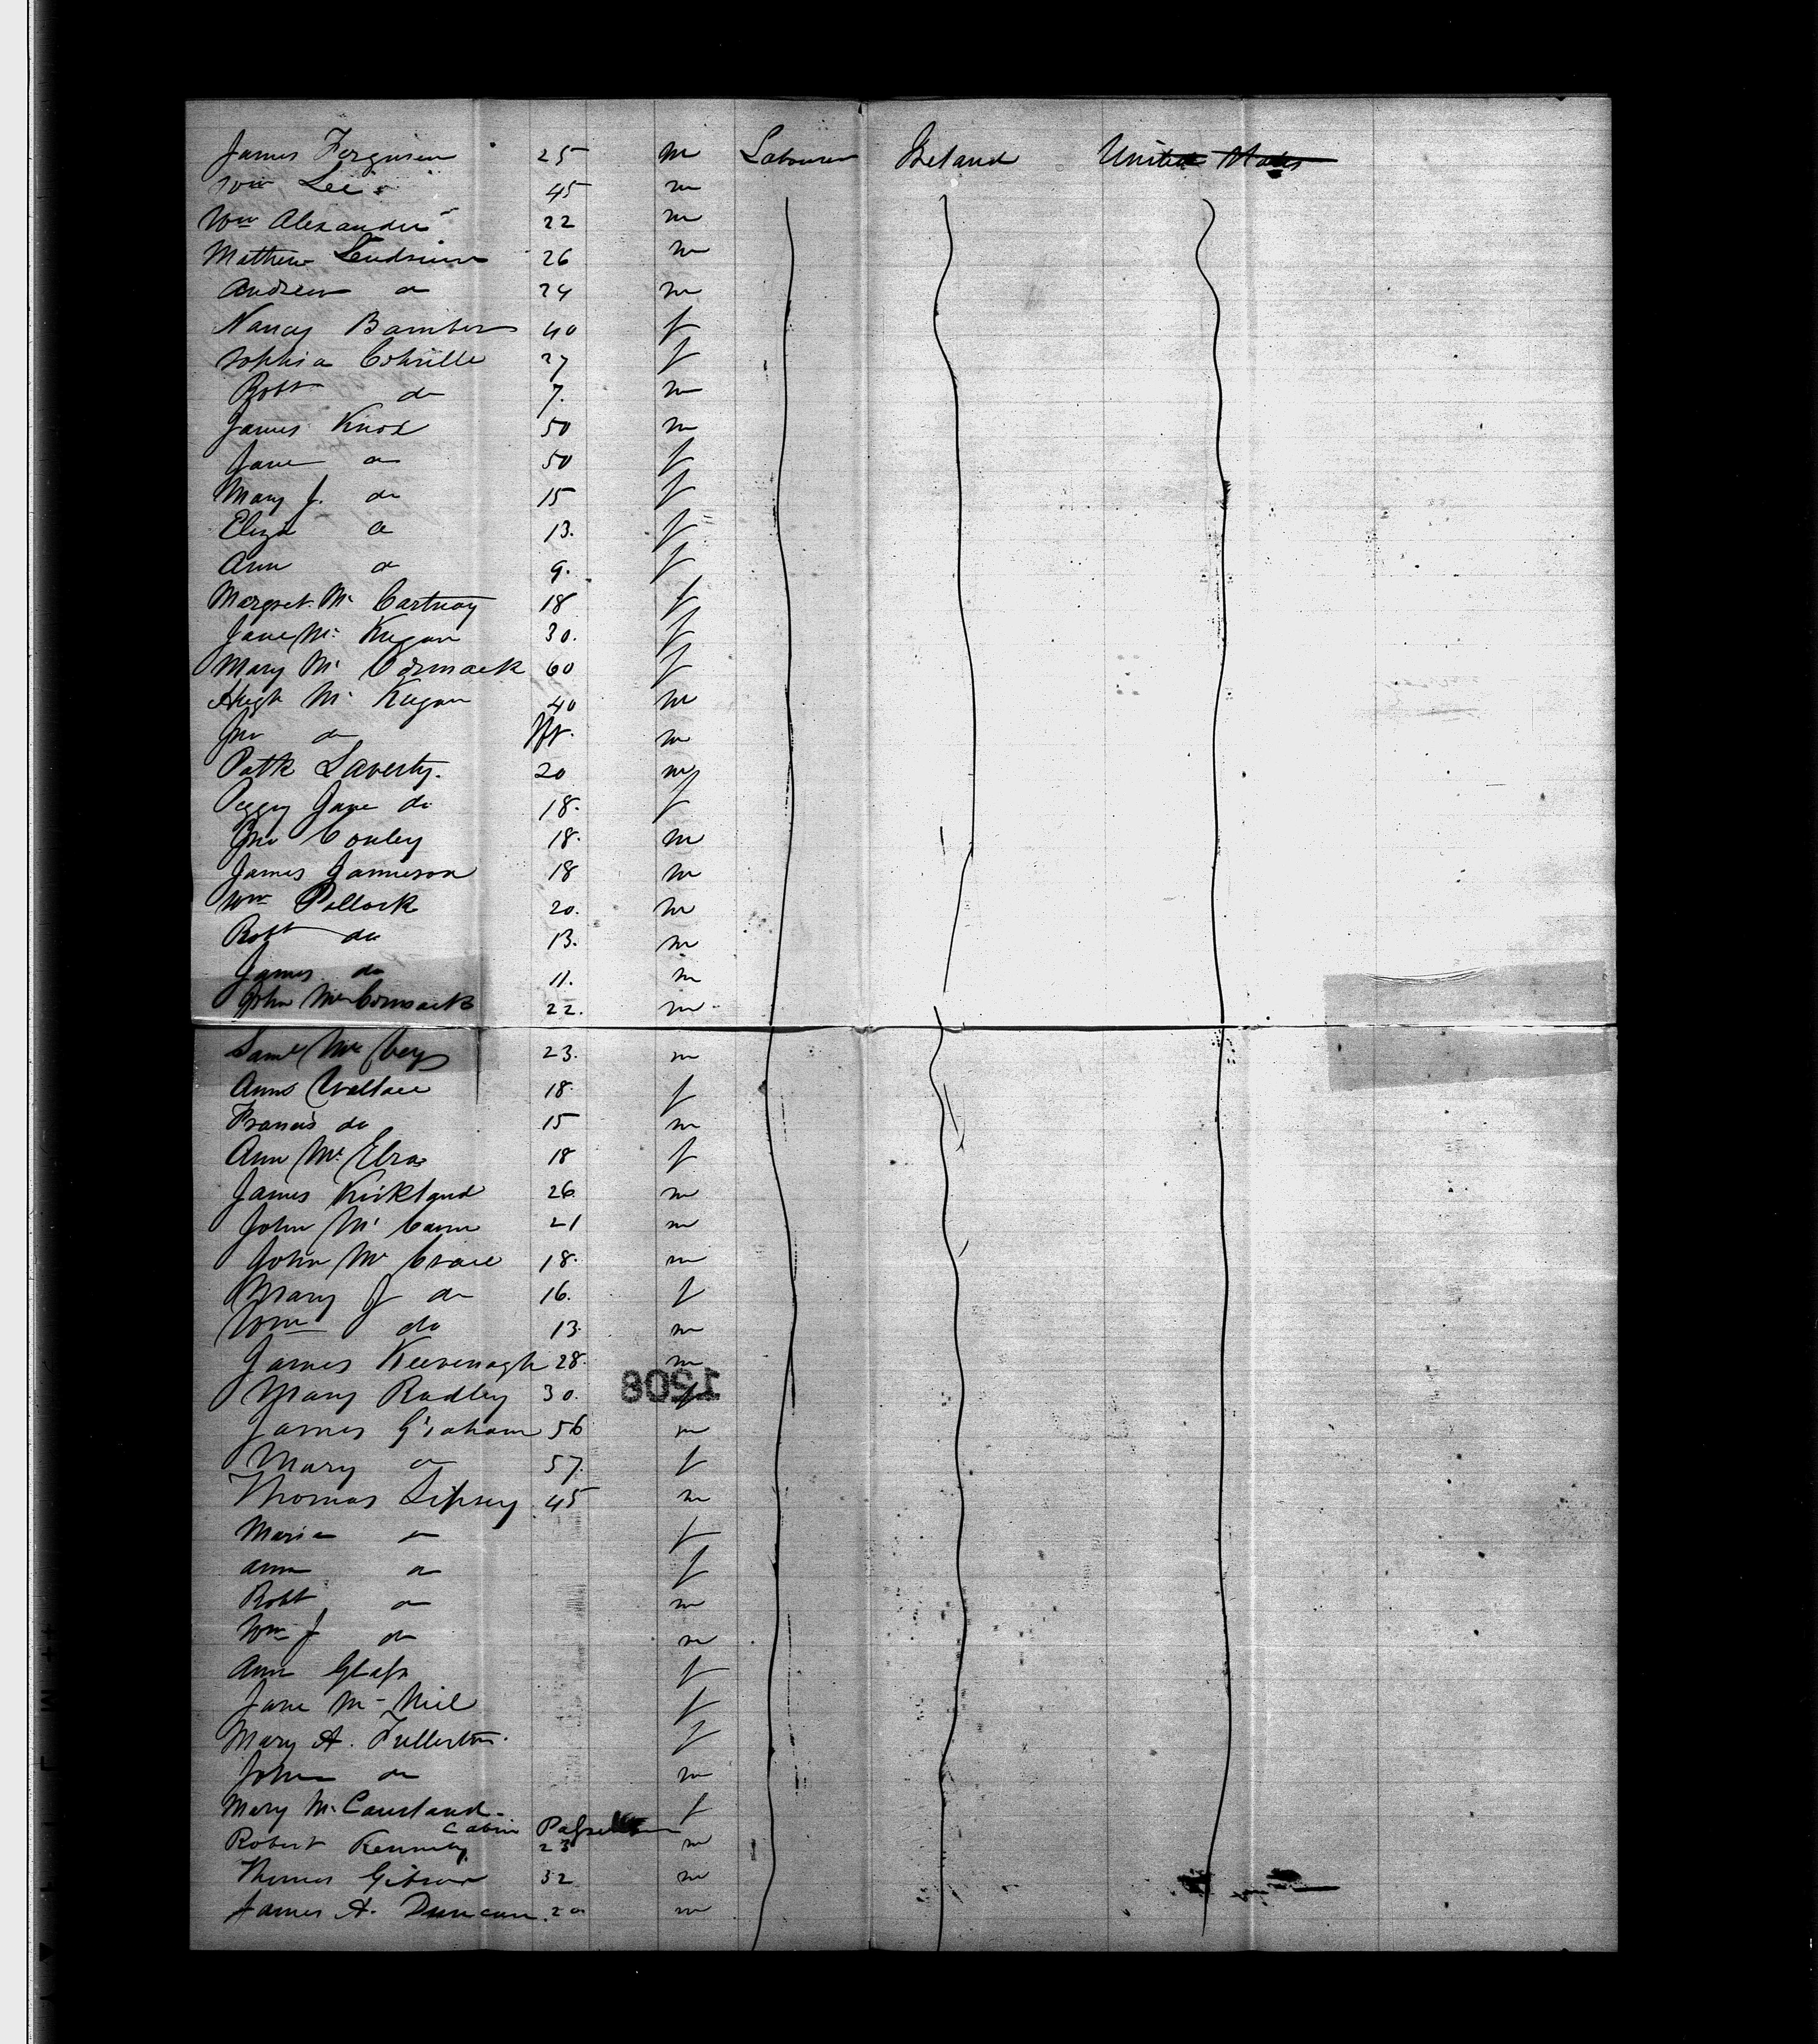 James Ferguson 25 m Labourer Ireland United States
Wm Lee 45 m
Wm Alexander 22 m
Mathew 26 m
Andrew do 24 m
Nancy Bamber 40 f
Sophia Colville 27 f
Robt do 7. m
James Knox 50 m
Jane do 50 f
Mary J. do 15 f
Eliza do 13. f
Ann do 9. f
Margret Mc Cartney 18 f
Jane Mc Kegan 30. f
Mary Mc Cormack 60 f
Hugh Mc Kegan 40 m
Jno do Inft. m
Patk Laverty. 20 m
Peggy Jane do 18. f
Jno Conley 18. m
James Jamieson 18 m
Wm Pollock 20. m
Robt do 13. m
James do 11. m
John McCormack 22. m
Saml Mc 23. m
Ann Wallace 18. f
Francis do 15 m
Ann Mc 18 f
James Kirkland 26 m
John Mc Cann 21 m
John Mc 18. m
Mary J do 16. f
Wm do 13. m
James Keevenagh 28. m
1208
Mary Radley 30. f
James Graham 56 m
Mary do 57. f
Thomas Lipsey 45 m
Maria do f
Ann do f
Robt do m
Wm J do m
Ann Glass f
Jane Mc Neil f
Mary A. Fullerton. f
John do m
Mary McCausland. f
Cabin Passengers
Robert Kennedy 23 m
Thomas Gibson 32 m
James A. Duncan. 20 m